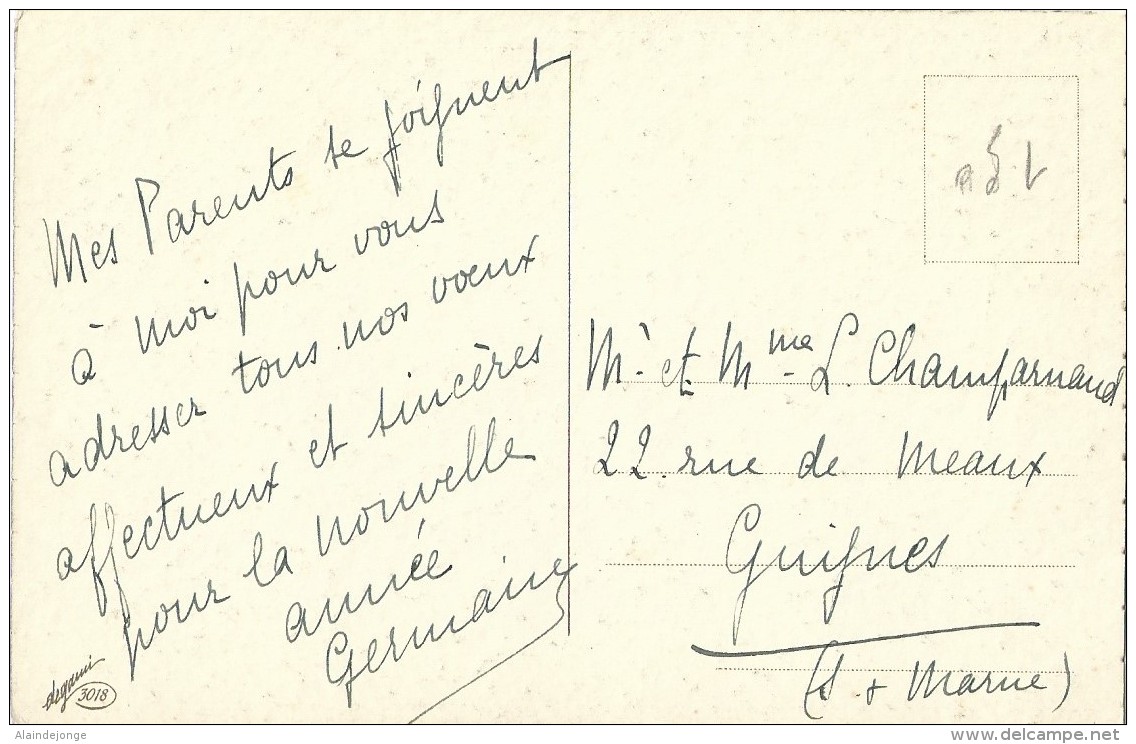 Mes Parents se joignent
à moi pour vous
adresser tous nos voeux
affectueux et sincères
pour la nouvelle
année
Germaine
3018
Mr et Mme L. Champarnaud
22 rue de Meaux
Guignes
(S + Marne)
Alaindejonge
delcampe.net